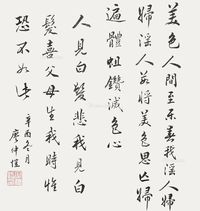 美色人間至乐春我淫人婦
婦淫人若将美色思亡婦
遍體蛆鑽滅色心
人見白髮悲我見白
髮喜父母生我時惟
恐不如此
辛酉冬月
廖仲愷